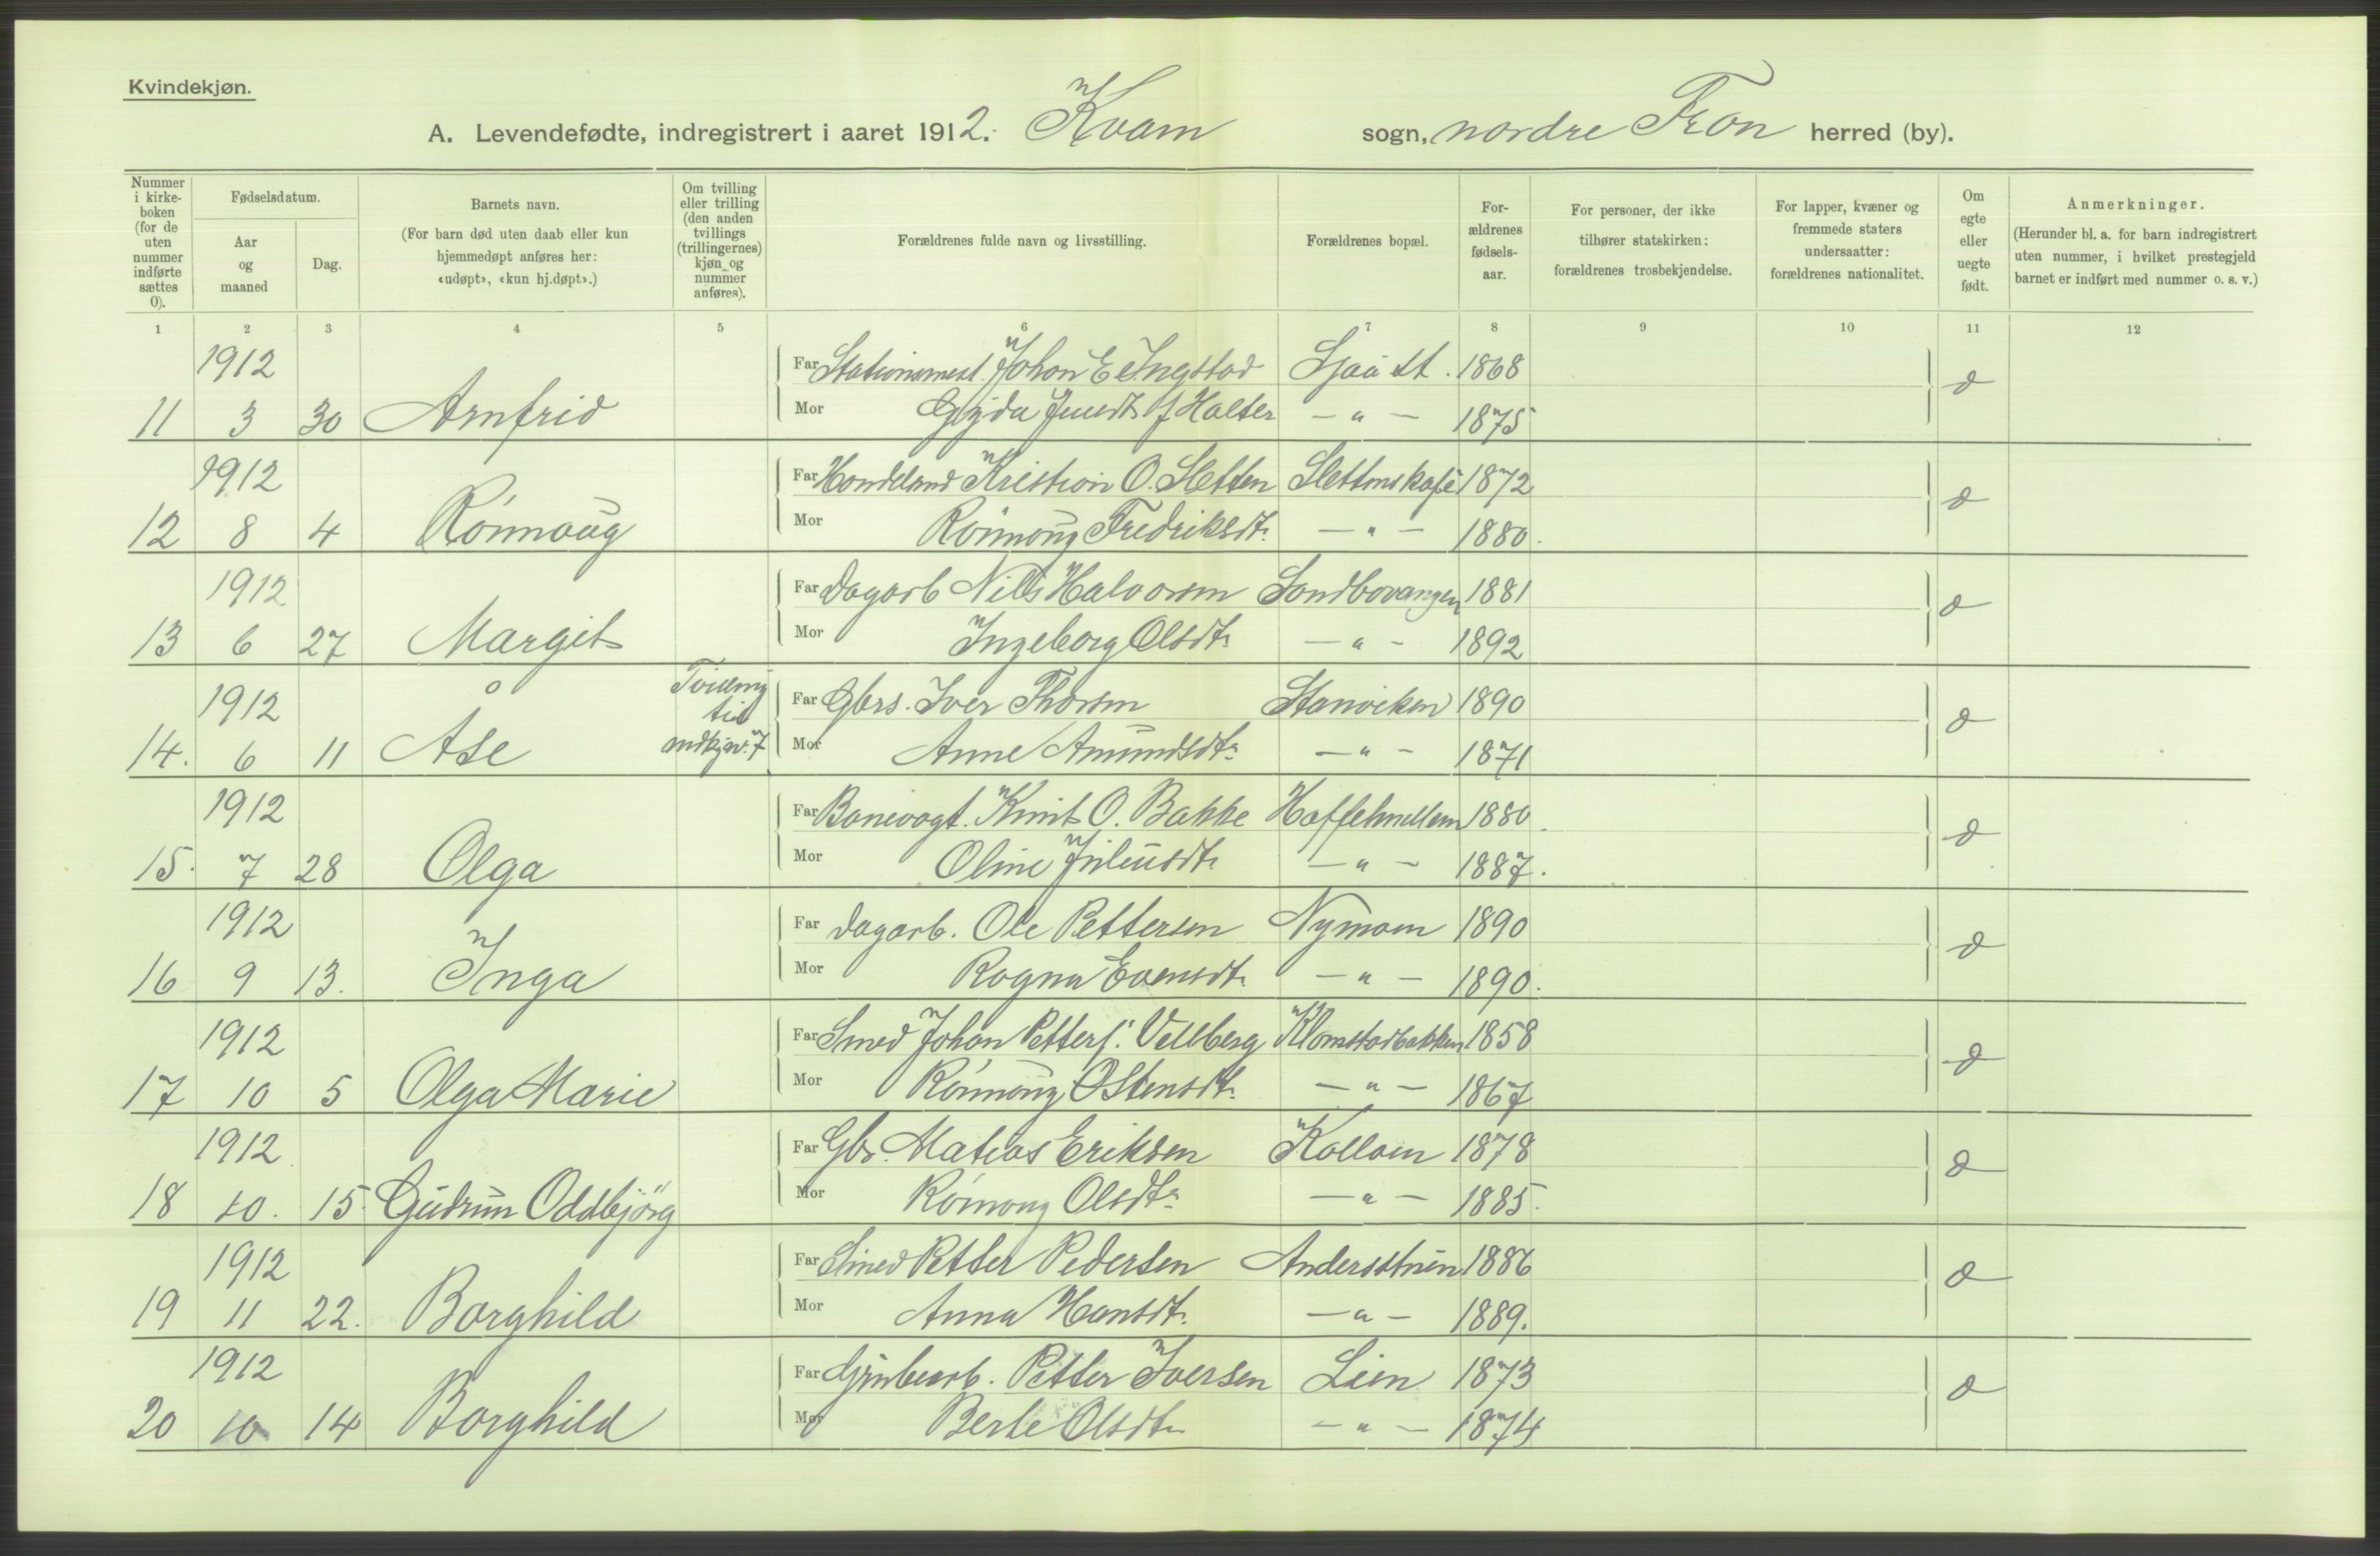 Kvindekjøn.
A. Levendefødte, indregistrert i aaret 1912. Kvam sogn, nordre Fron herred (by).
Nummer i kirke-boken (for de uten nummer indførte sættes 0).
Fødselsdatum.
Aar og maaned
Dag.
Barnets navn.
(For barn død uten daab eller kun hjemmedøpt anføres her: «udøpt», «kun hj.døpt».)
Om tvilling eller trilling (den anden tvillings (trillingernes) kjøn og nummer anføres).
Forældrenes fulde navn og livsstilling.
Forældrenes bopæl.
For-ældrenes fødsels-aar.
For personer, der ikke tilhører statskirken: forældrenes trosbekjendelse.
For lapper, kvæner og fremmede staters undersaatter: forældrenes nationalitet.
Om egte eller uegte født.
Anmerkninger.
(Herunder bl. a. for barn indregistrert uten nummer, i hvilket prestegjeld barnet er indført med nummer o. s. v.)
1 2 3 4 5 6 7 8 9 10 11 12
1912 Far Stationsmest. Johan E Ingstad Sjoa st. 1868
11 3 30 Arnfrid Mor Gyda f Holter — " — 1875
1912 Far Kristian O. Sletten 1872
12 8 4 Rönnaug Mor Rönnaug Fredriksdtr. — " — 1880.
1912 Far Dagarb Nills Halvorsen Sandbovangen 1881
13 6 27 Margit Mor Ingeborg Olsdtr. — " — 1892
1912 Tvilling til Far Gbrs. Iver Thorsen 1890
14. 6 11 Åse mdkjøn. 7 Mor Anne Amundsdtr. — " — 1871
1912 Far Banevogt. Knut O. Bakke 1880.
15. 7 28 Olga Mor Oline Juliusdtr. — " — 1887.
1912 Far Dagarb. Ole Pettersen Nymoen 1890
16 9 13. Inga Mor Ragna Evensdtr. — " — 1890.
1912 Far Smed Johan Petters. Vellberg Klomstadbakken 1858
17 10 5 Olga Marie Mor Rönnaug Ostensdtr. — " — 1867
1912 Far Gbr. Matias Eriksen 1878
18 10. 15 Gudrun Oddbjörg Mor Rönnaug Olsdtr. — " — 1885.
1912 Far Smed Petter Pedersen 1886
19 11 22. Borghild Mor Anna Hansdtr. — " — 1889.
1912 Far Petter Iversen Lien 1873
20 10 14 Borghild Mor Berte Olsdtr. — " — 1874